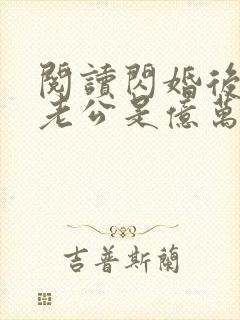 閱讀閃婚後
老公是億萬
吉普斯蘭